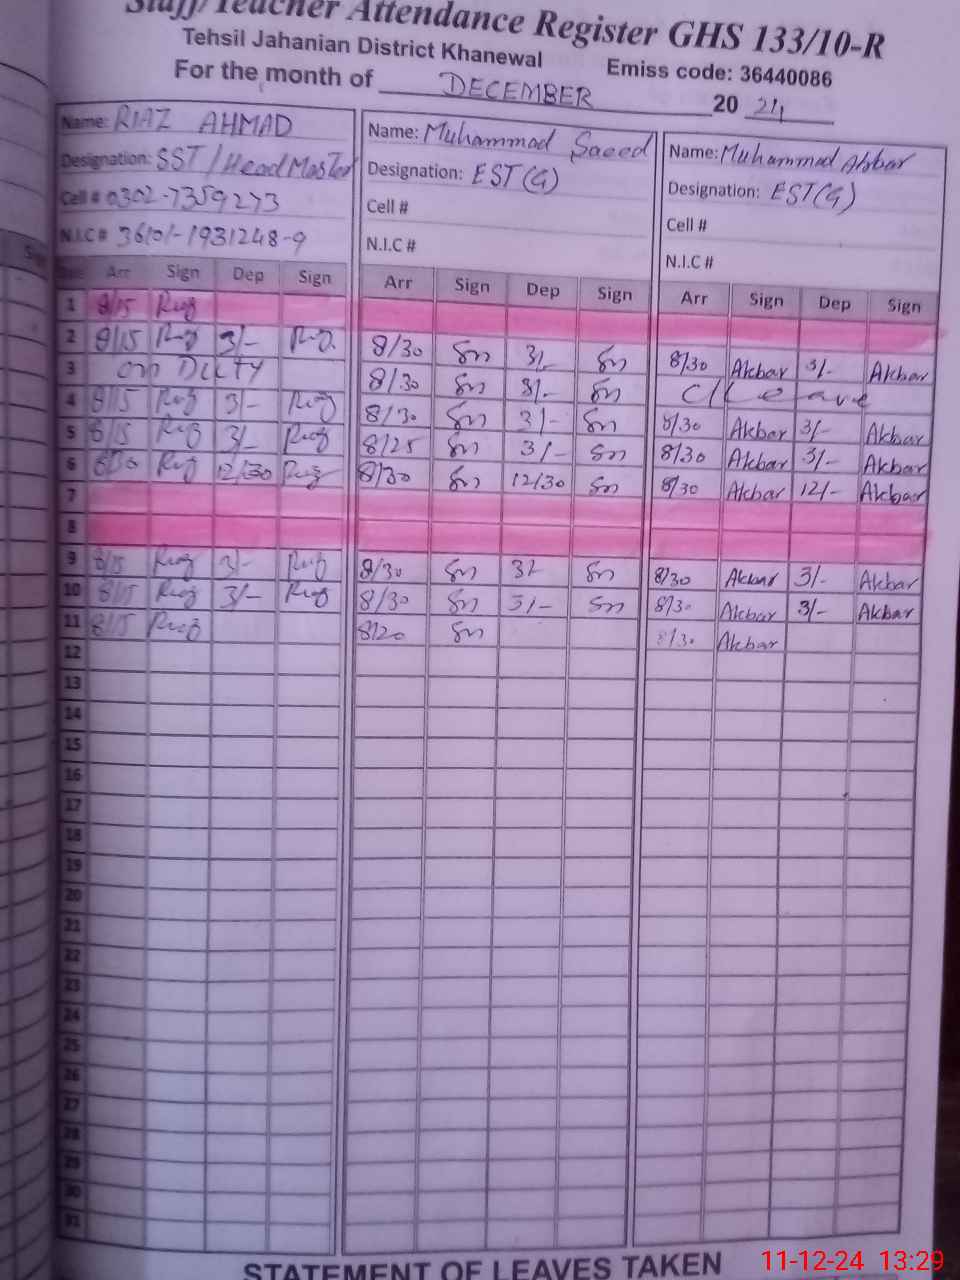 Staff/Teacher Attendance Register GHS 133/10-R
Tehsil Jahanian District Khanewal Emiss code: 36440086
For the month of DECEMBER 20 24
Name: RIAZ AHMAD Name: Muhammad Saeed Name: Muhammad Akbar
Designation: SST/Head Master Designation: EST(G) Designation: EST(G)
Cell # 0302-7359273 Cell # Cell #
N.I.C # 36101-1931248-9 N.I.C # N.I.C #
Arr Sign Dep Sign Arr Sign Dep Sign Arr Sign Dep Sign
1 8/15
2 8/15 3/- 8/30 Sn 3/- Sn 8/30 Akbar 3/- Akbar
3 on Duty 8/30 Sn 3/- Sn C/Leave
4 8/15 3/- 8/30 Sn 3/- Sn 8/30 Akbar 3/- Akbar
5 8/15 3/- 8/25 Sn 3/- Sn 8/30 Akbar 3/- Akbar
6 12/30 8/30 Sn 12/30 Sn 8/30 Akbar 12/- Akbar
7
8
9 8/15 3/- 8/30 Sn 3/- Sn 8/30 Akbar 3/- Akbar
10 8/15 3/- 8/30 Sn 3/- Sn 8/30 Akbar 3/- Akbar
11 8/15 8/20 Sn 8/30 Akbar
12
13
14
15
16
17
18
19
20
21
22
23
24
25
26
27
28
29
30
31
STATEMENT OF LEAVES TAKEN
11-12-24 13:29